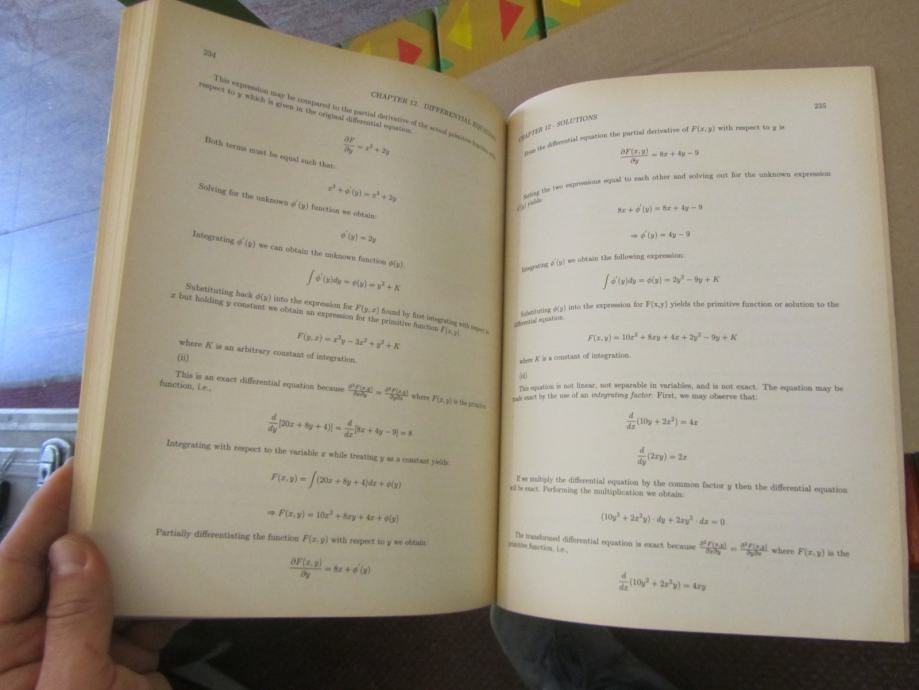 234
CHAPTER 12. DIFFERENTIAL
This expression may be compared to the partial derivative of the actual primitive function with
respect to y which is given in the original differential equation.
∂F/∂y = x³ + 2y
Both terms must be equal such that:
x³ + ϕ'(y) = x³ + 2y
Solving for the unknown ϕ'(y) function we obtain:
ϕ'(y) = 2y
Integrating ϕ'(y) we can obtain the unknown function ϕ(y).
∫ ϕ'(y)dy = ϕ(y) = y² + K
Substituting back ϕ(y) into the expression for F(y, x) found by first integrating with respect to
x but holding y constant we obtain an expression for the primitive function F(x, y).
F(y, x) = x³y − 3x² + y² + K
where K is an arbitrary constant of integration.
(ii)
This is an exact differential equation because ∂²F(x,y)/∂x∂y = ∂²F(x,y)/∂y∂x where F(x, y) is the primitive
function, i.e.,
d/dy[20x + 8y + 4)] = d/dx[8x + 4y − 9] = 8
Integrating with respect to the variable x while treating y as a constant yields:
F(x, y) = ∫(20x + 8y + 4)dx + ϕ(y)
⇒ F(x, y) = 10x² + 8xy + 4x + ϕ(y)
Partially differentiating the function F(x, y) with respect to y we obtain:
∂F(x, y)/∂y = 8x + ϕ'(y)
CHAPTER 12 - SOLUTIONS
235
From the differential equation the partial derivative of F(x, y) with respect to y is
∂F(x, y)/∂y = 8x + 4y − 9
Setting the two expressions equal to each other and solving out for the unknown expression
ϕ'(y) yields:
8x + ϕ'(y) = 8x + 4y − 9
⇒ ϕ'(y) = 4y − 9
Integrating ϕ'(y) we obtain the following expression:
∫ ϕ'(y)dy = ϕ(y) = 2y² − 9y + K
Substituting ϕ(y) into the expression for F(x,y) yields the primitive function or solution to the
differential equation.
F(x, y) = 10x² + 8xy + 4x + 2y² − 9y + K
where K is a constant of integration.
(iii)
This equation is not linear, not separable in variables, and is not exact. The equation may be
made exact by the use of an integrating factor. First, we may observe that:
d/dx(10y + 2x²) = 4x
d/dy(2xy) = 2x
If we multiply the differential equation by the common factor y then the differential equation
will be exact. Performing the multiplication we obtain:
(10y² + 2x²y) · dy + 2xy² · dx = 0
The transformed differential equation is exact because ∂²F(x,y)/∂x∂y = ∂²F(x,y)/∂y∂x where F(x, y) is the
primitive function, i.e.,
d/dx(10y² + 2x²y) = 4xy